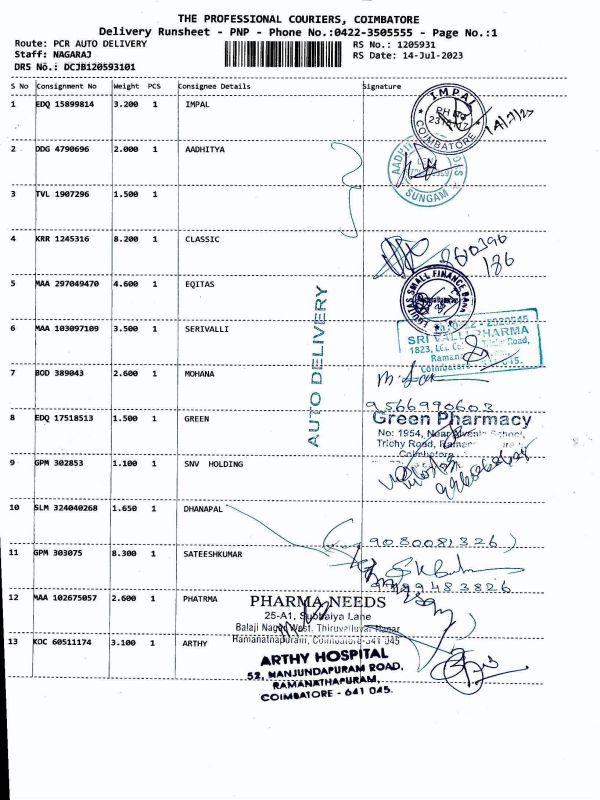 THE PROFESSIONAL COURIERS, COIMBATORE
Delivery Runsheet - PNP - Phone No.:0422-3505555 - Page No.:1
Route: PCR AUTO DELIVERY RS No.: 1205931
Staff: NAGARAJ RS Date: 14-Jul-2023
DRS No.: DCJB120593101
S No Consignment No Weight PCS Consignee Details Signature
1 EDQ 15899814 3.200 1 IMPAL
IMPAL
COIMBATORE
2 DDG 4790696 2.000 1 AADHITYA
SUNGAM
3 TVL 1907296 1.500 1
4 KRR 1245316 8.200 1 CLASSIC
186
5 MAA 297049470 4.600 1 EQITAS
EQUITAS SMALL FINANCE BANK
6 MAA 103097109 3.500 1 SERIVALLI
SRI VALLI PHARMA
Trichy Road,
Coimbatore
AUTO DELIVERY
7 BOD 389043 2.600 1 MOHANA
9566990603
8 EDQ 17518513 1.500 1 GREEN
Green Pharmacy
No: 1954, Near School,
Trichy Road,
Coimbatore
9 GPM 302853 1.100 1 SNV HOLDING
10 SLM 324040268 1.650 1 DHANAPAL
9080081326
11 GPM 303075 8.300 1 SATEESHKUMAR
12 MAA 102675057 2.600 1 PHATRMA
PHARMA NEEDS
25-A1, Subbaiya Lane
Balaji Nagar West, Thiruvalluvar Nagar
Ramanathapuram, Coimbatore-641 045
13 KOC 60511174 3.100 1 ARTHY
ARTHY HOSPITAL
52, NANJUNDAPURAM ROAD,
RAMANATHAPURAM,
COIMBATORE - 641 045.